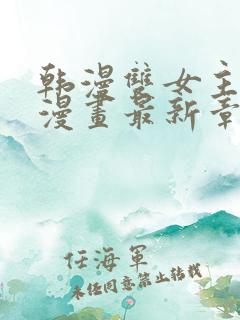 韩漫雙女主
漫畫最新章
任海軍
未经同意禁止转载